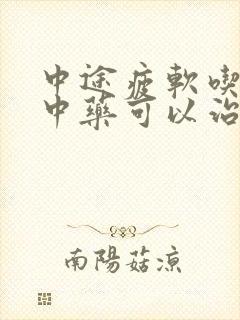 中途疲軟喫
中藥可以治
南陽菇涼